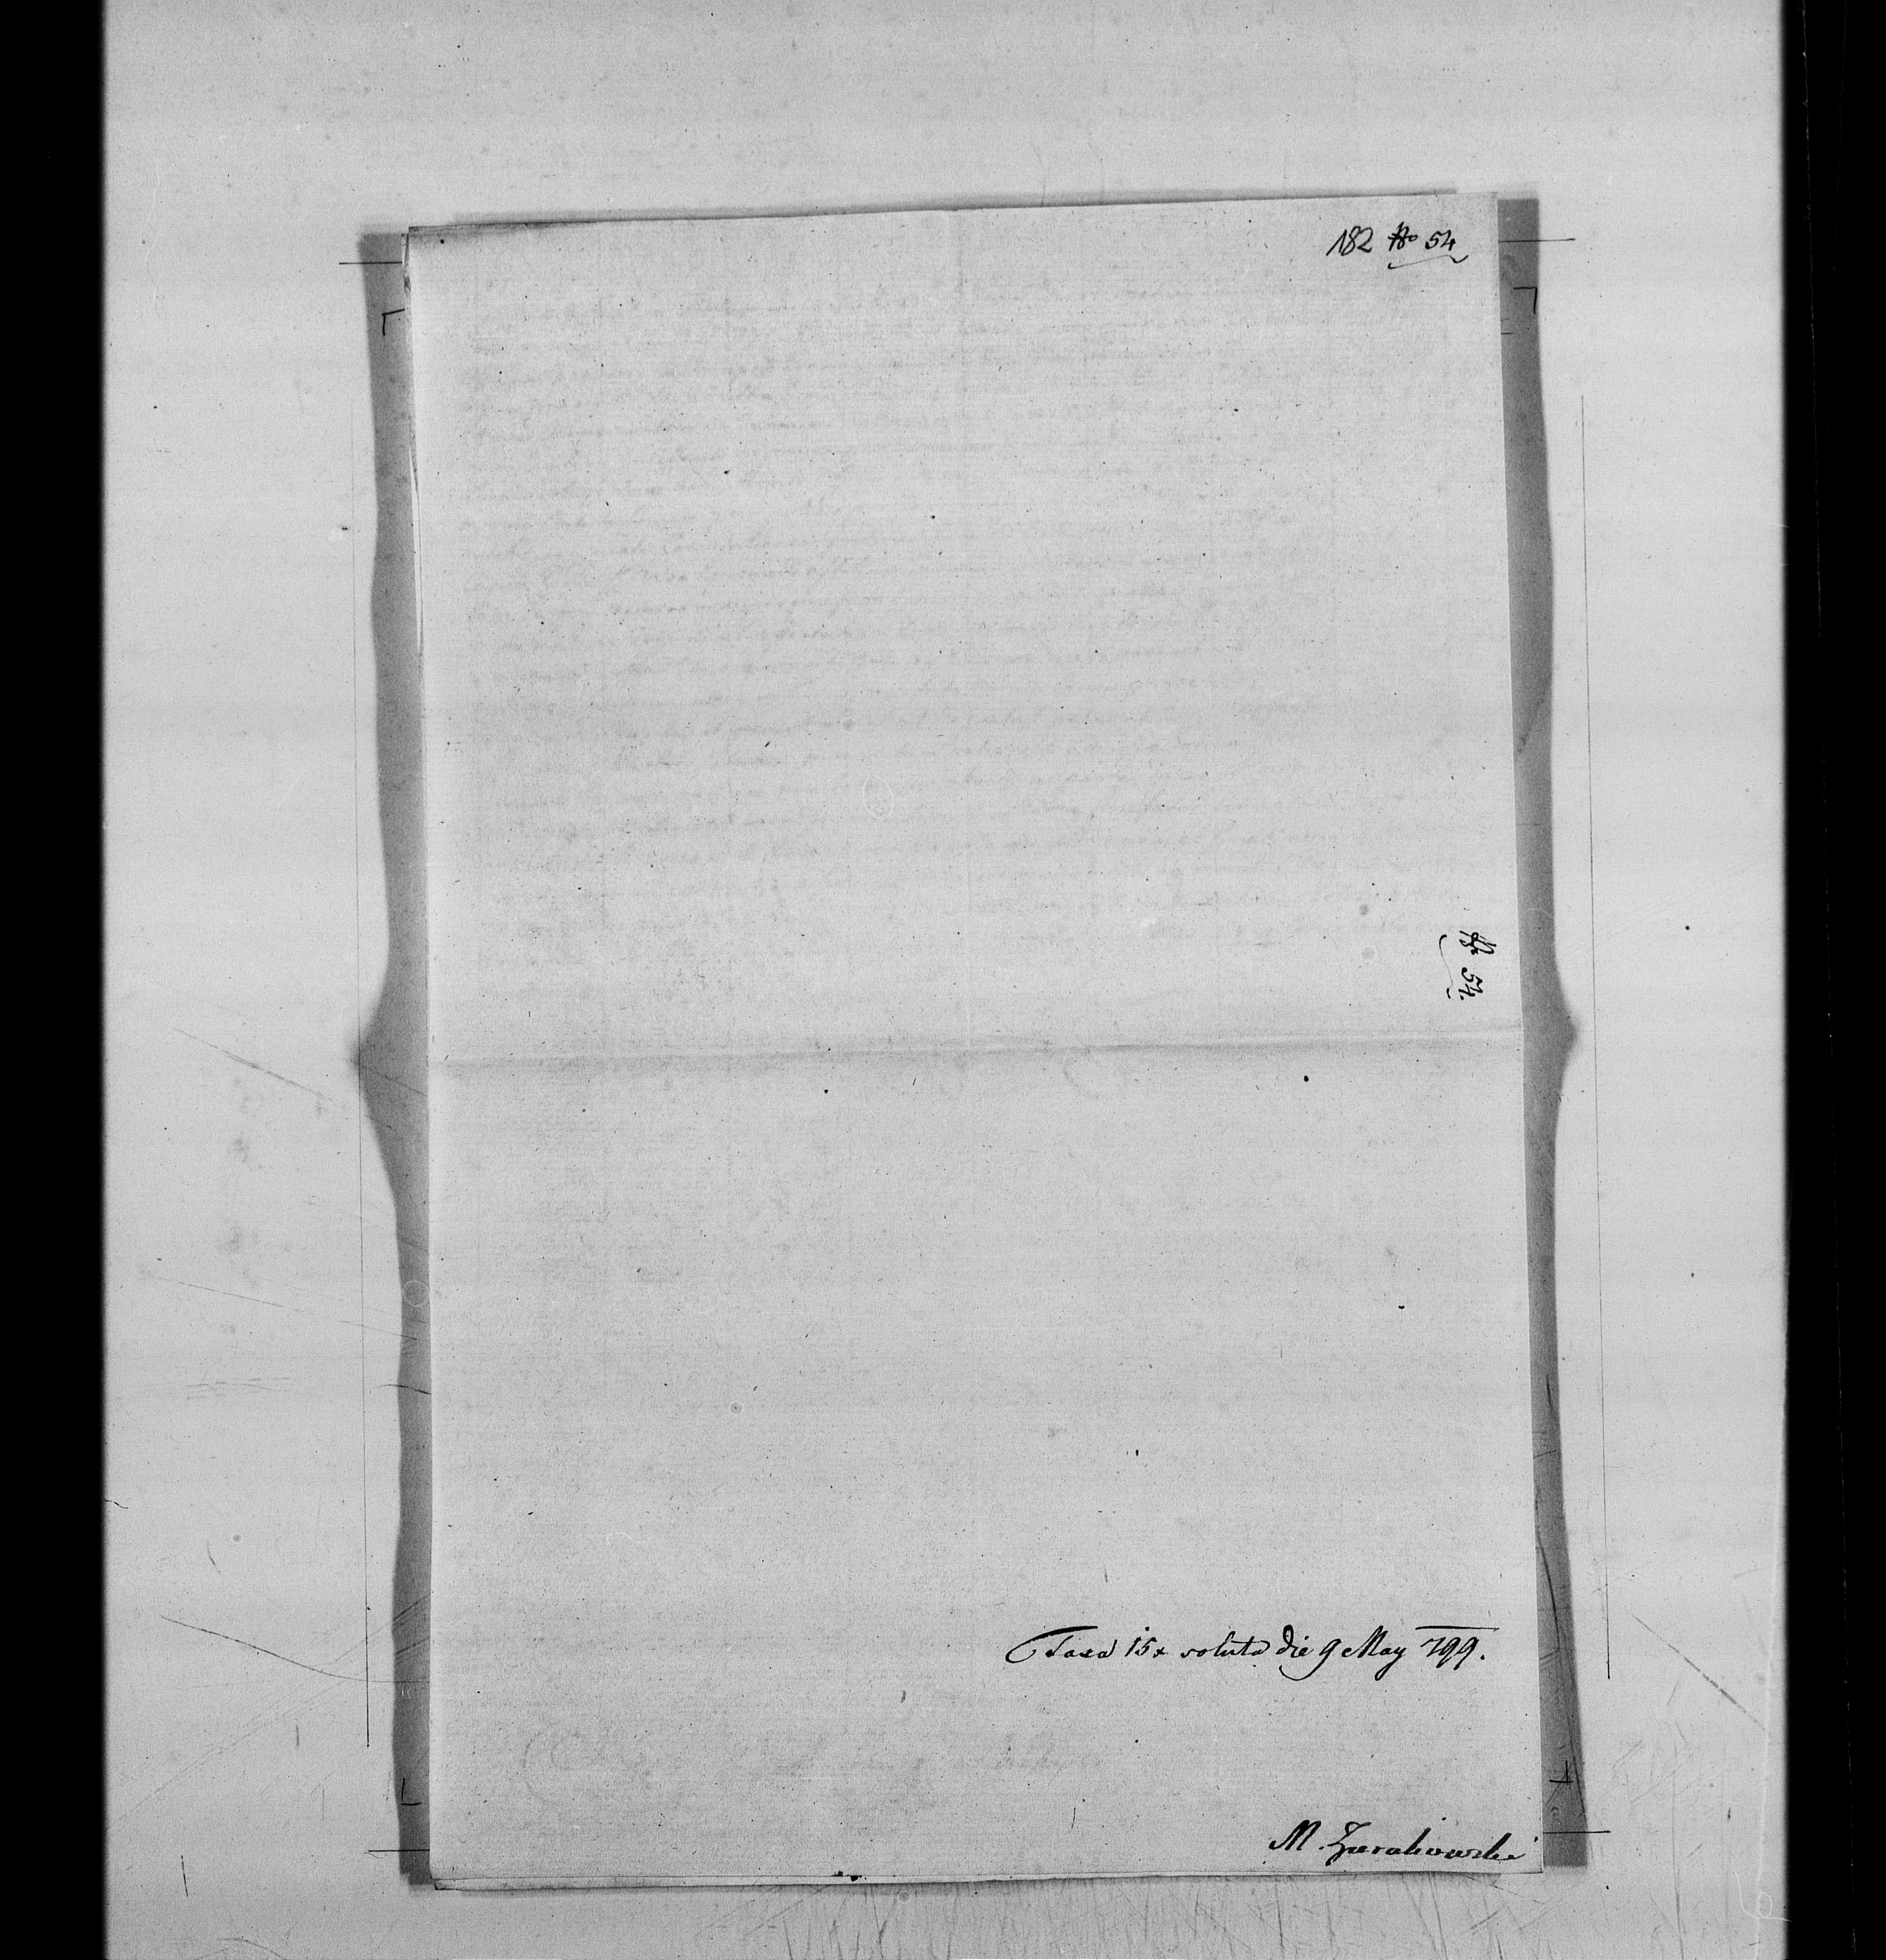 182 No 54
No 54.
Taxa 15x soluta die 9 May 799.
M. Żurakowski